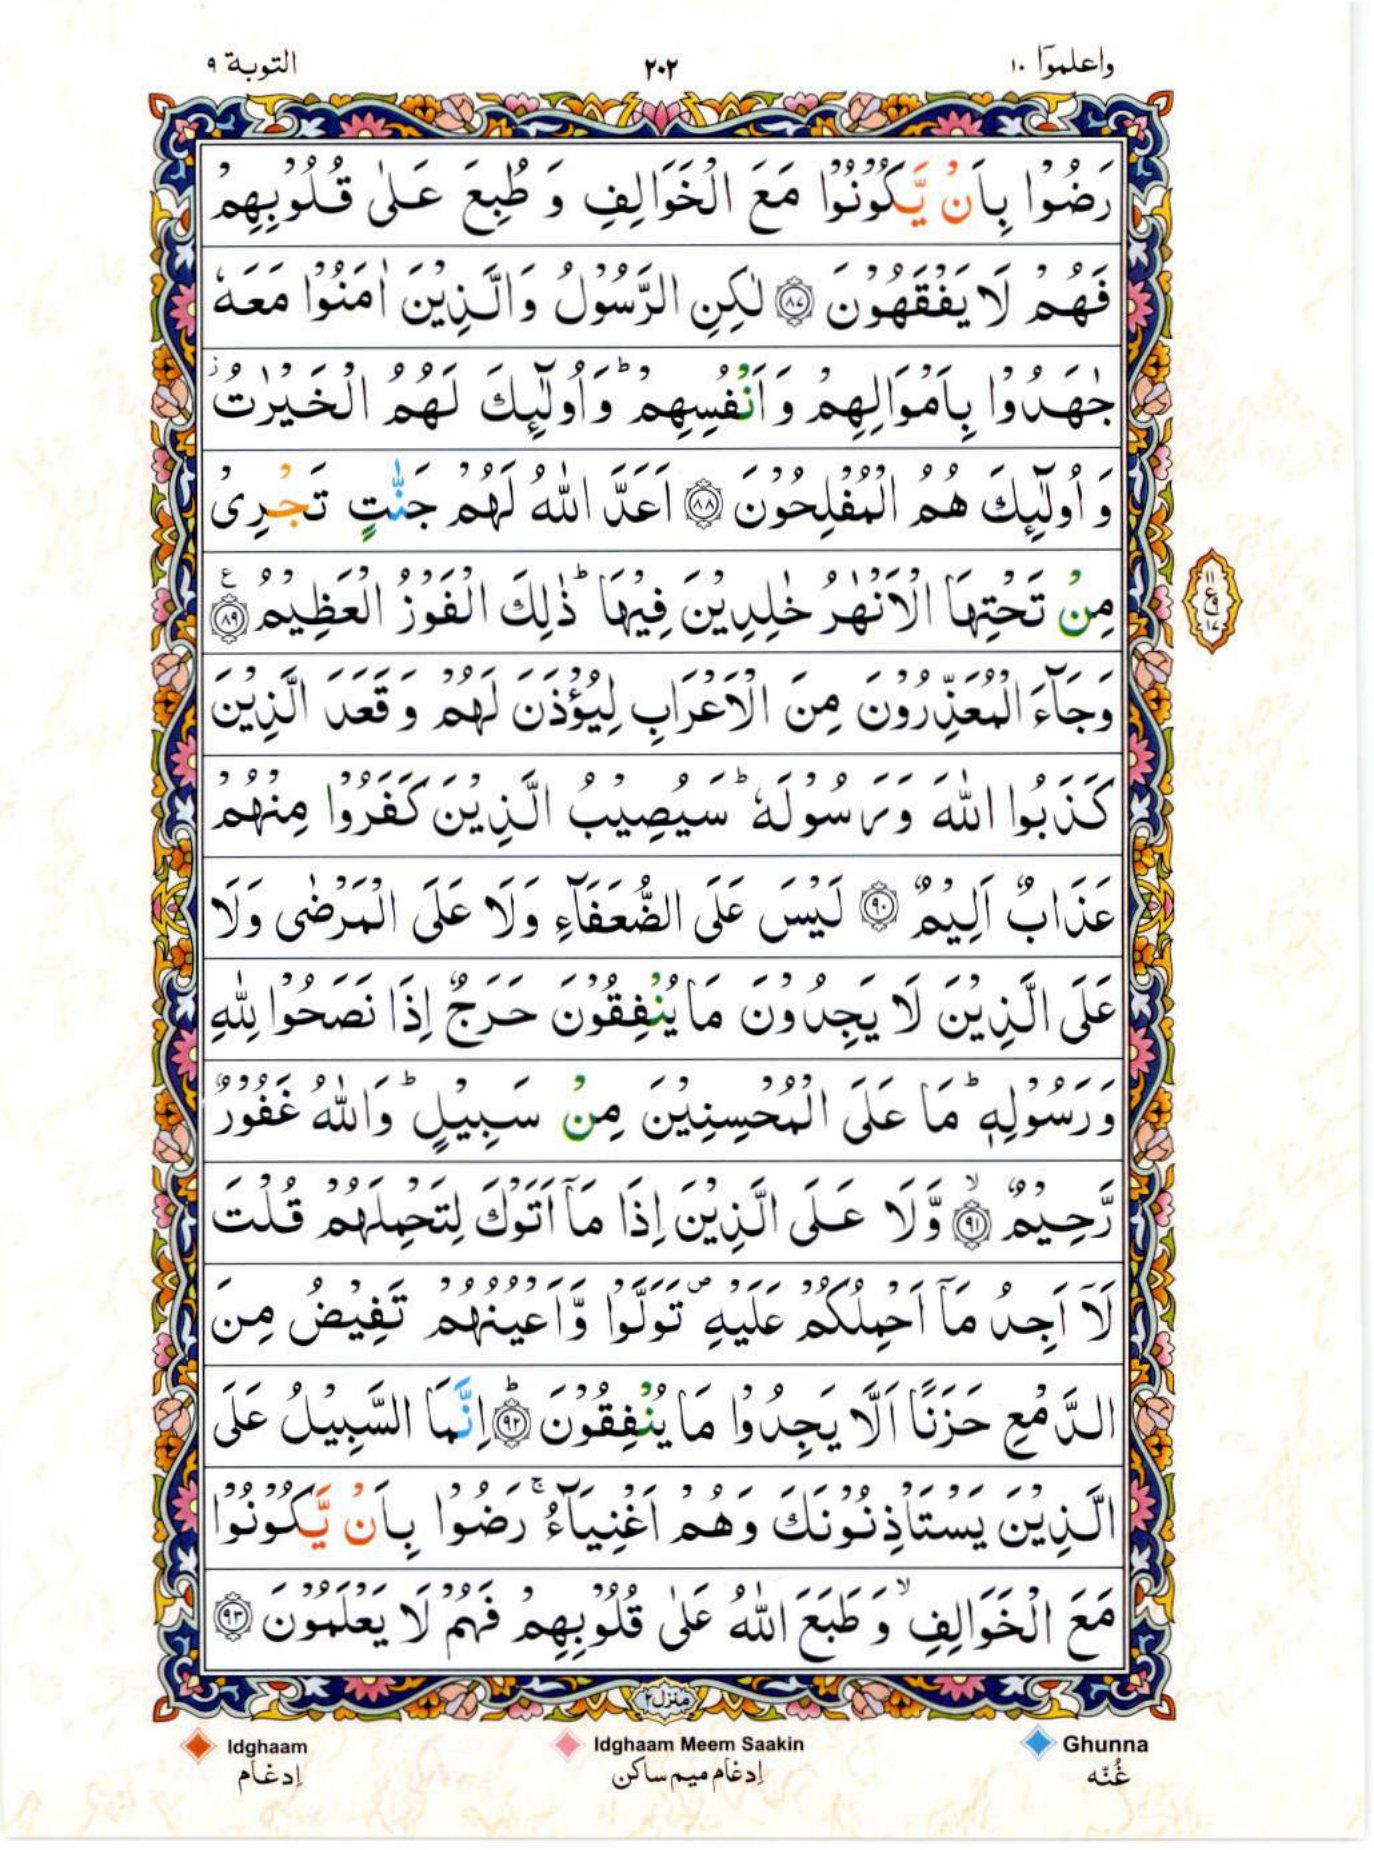 واعلموٓا ١٠
٢٠٢
التوبة ٩
رَضُوْا بِاَنْ يَّكُوْنُوْا مَعَ الْخَوَالِفِ وَ طُبِعَ عَلٰى قُلُوْبِهِمْ
فَهُمْ لَا يَفْقَهُوْنَ ﴿٨٧﴾ لٰكِنِ الرَّسُوْلُ وَالَّذِيْنَ اٰمَنُوْا مَعَهٗ
جٰهَدُوْا بِاَمْوَالِهِمْ وَ اَنْفُسِهِمْ ؕ وَ اُولٰٓئِكَ لَهُمُ الْخَيْرٰتُ ؗ
وَ اُولٰٓئِكَ هُمُ الْمُفْلِحُوْنَ ﴿٨٨﴾ اَعَدَّ اللّٰهُ لَهُمْ جَنّٰتٍ تَجْرِىْ
مِنْ تَحْتِهَا الْاَنْهٰرُ خٰلِدِيْنَ فِيْهَا ؕ ذٰلِكَ الْفَوْزُ الْعَظِيْمُ ﴿٨٩﴾ ع
١١
ع ٩
١٧
وَ جَآءَ الْمُعَذِّرُوْنَ مِنَ الْاَعْرَابِ لِيُؤْذَنَ لَهُمْ وَ قَعَدَ الَّذِيْنَ
كَذَبُوا اللّٰهَ وَ رَسُوْلَهٗ ؕ سَيُصِيْبُ الَّذِيْنَ كَفَرُوْا مِنْهُمْ
عَذَابٌ اَلِيْمٌ ﴿٩٠﴾ لَيْسَ عَلَى الضُّعَفَآءِ وَلَا عَلَى الْمَرْضٰى وَلَا
عَلَى الَّذِيْنَ لَا يَجِدُوْنَ مَا يُنْفِقُوْنَ حَرَجٌ اِذَا نَصَحُوْا لِلّٰهِ
وَ رَسُوْلِهٖ ؕ مَا عَلَى الْمُحْسِنِيْنَ مِنْ سَبِيْلٍ ؕ وَاللّٰهُ غَفُوْرٌ
رَّحِيْمٌ ﴿٩١﴾ ۙ وَّلَا عَلَى الَّذِيْنَ اِذَا مَآ اَتَوْكَ لِتَحْمِلَهُمْ قُلْتَ
لَآ اَجِدُ مَآ اَحْمِلُكُمْ عَلَيْهِ ۪ تَوَلَّوْا وَّ اَعْيُنُهُمْ تَفِيْضُ مِنَ
الدَّمْعِ حَزَنًا اَلَّا يَجِدُوْا مَا يُنْفِقُوْنَ ؕ ﴿٩٢﴾ اِنَّمَا السَّبِيْلُ عَلَى
الَّذِيْنَ يَسْتَاْذِنُوْنَكَ وَهُمْ اَغْنِيَآءُ ۚ رَضُوْا بِاَنْ يَّكُوْنُوْا
مَعَ الْخَوَالِفِ ۙ وَ طَبَعَ اللّٰهُ عَلٰى قُلُوْبِهِمْ فَهُمْ لَا يَعْلَمُوْنَ ﴿٩٣﴾
منزل ٢
Idghaam
إدغام
Idghaam Meem Saakin
إدغام ميم ساكن
Ghunna
غُنّه